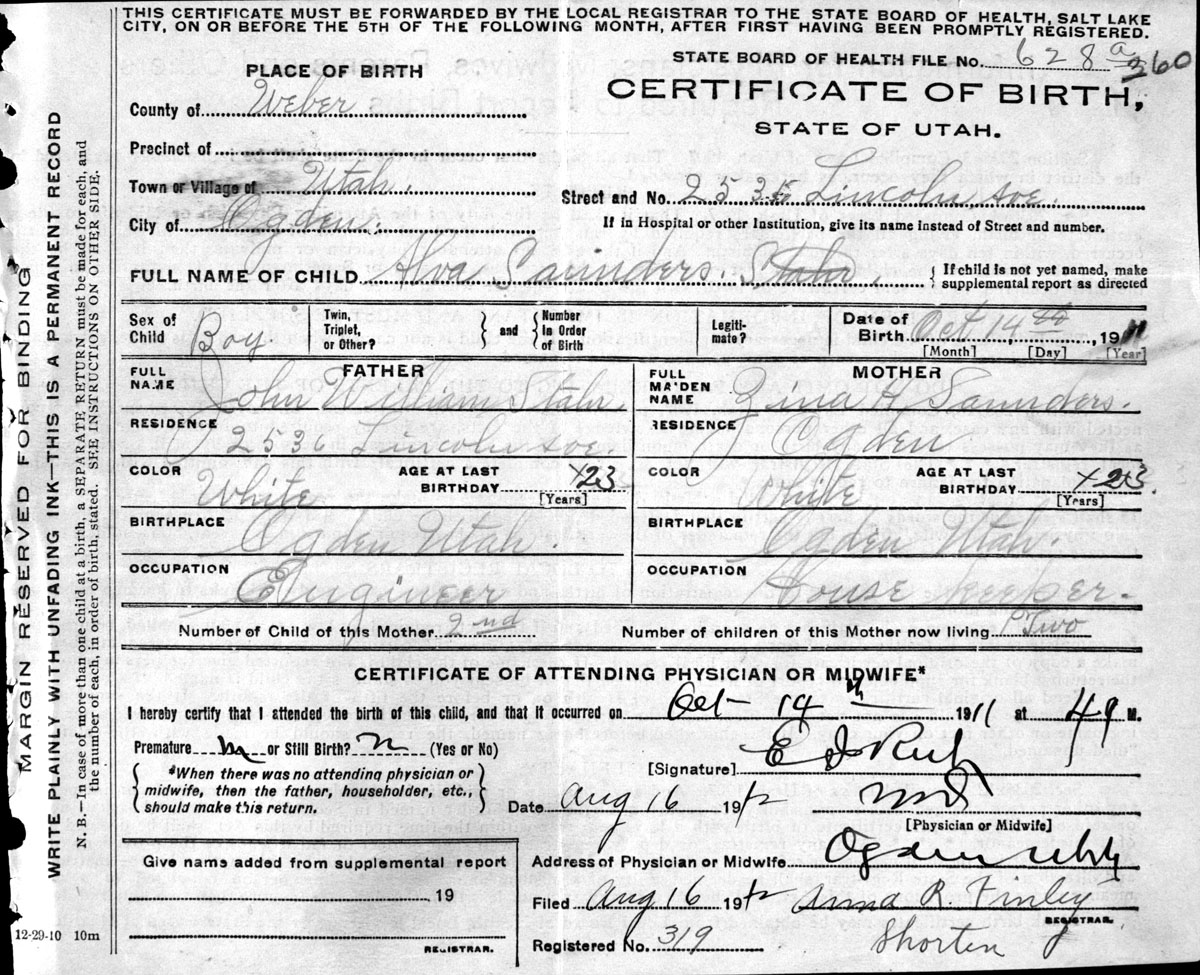 THIS CERTIFICATE MUST BE FORWARDED BY THE LOCAL REGISTRAR TO THE STATE BOARD OF HEALTH, SALT LAKE
CITY, ON OR BEFORE THE 5TH OF THE FOLLOWING MONTH, AFTER FIRST HAVING BEEN PROMPTLY REGISTERED.
STATE BOARD OF HEALTH FILE No. 628 a 360
PLACE OF BIRTH
CERTIFICATE OF BIRTH,
STATE OF UTAH.
County of Weber
Precinct of
Town or Village of Utah.
Street and No. 2536 Lincoln Ave.
City of Ogden.
If in Hospital or other Institution, give its name instead of Street and number.
FULL NAME OF CHILD Alva Saunders. Stahr
If child is not yet named, make
supplemental report as directed
Sex of Child Boy
Twin, Triplet, or Other?
and
Number In Order of Birth
Legitimate?
Date of Birth Oct 14 1911
[Month] [Day] [Year]
FATHER
FULL NAME John William Stahr.
RESIDENCE 2536 Lincoln Ave.
COLOR White
AGE AT LAST BIRTHDAY 23
[Years]
BIRTHPLACE Ogden Utah.
OCCUPATION Engineer
MOTHER
FULL MAIDEN NAME Zina H. Saunders.
RESIDENCE Ogden
COLOR White
AGE AT LAST BIRTHDAY 23.
[Years]
BIRTHPLACE Ogden Utah
OCCUPATION House keeper.
Number of Child of this Mother 2nd
Number of children of this Mother now living Two
CERTIFICATE OF ATTENDING PHYSICIAN OR MIDWIFE*
I hereby certify that I attended the birth of this child, and that it occurred on Oct 14th 1911 at M.
Premature or Still Birth? (Yes or No)
*When there was no attending physician or
midwife, then the father, householder, etc.,
should make this return.
[Signature]
Date Aug 16 1912 MD
[Physician or Midwife]
Give name added from supplemental report
19
REGISTRAR.
Address of Physician or Midwife Ogden Utah
Filed Aug 16 1912 Anna R. Finley
REGISTRAR.
Shorten
Registered No. 319
12-29-10 10m
MARGIN RESERVED FOR BINDING
WRITE PLAINLY WITH UNFADING INK—THIS IS A PERMANENT RECORD
N. B.—In case of more than one child at a birth, a SEPARATE RETURN must be made for each, and
the number of each, in order of birth, stated. SEE INSTRUCTIONS ON OTHER SIDE.